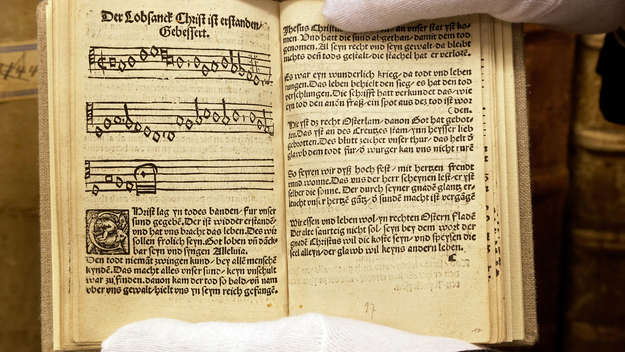 Der Lobsanck Christ ist erstanden/
Gebessert.
CHrist lag yn todes banden/ fur unser
sund gegebē. Der ist widder erstandē
und hat uns bracht das leben. Des wir
sollen frolich seyn. Got loben uñ dāck
bar seyn und syngen Alleluia.
Den tod niemāt zwingen kund/ bey allē menschē
kyndē. Das macht alles unser sund/ keyn unschult
war zu finden. danon kam der tod so bald/ uñ nam
uber uns gewalt/ hielt uns yn seym reich gefangē.
Jhesus Christus an unser stat yst ko-
men. Und hatt die sund abgethan/ damit dem tod
genomen. Al seyn recht und seyn gewalt/ da bleibt
nichts deñ tods gestalt/ die stachel hat er verloren.
Es war eyn wunderlich krieg/ da tod und leben
rungen. Das leben behielt den sieg/ es hat den tod
verschlungen. Die schrifft hatt verkundet das/ wie
eyn tod den andn fraß/ ein spot aus dez tod ist wor
den.
Die yst dz recht Osterlam/ danon Got hat gebot-
ten. Das yst an des Creutzes stam/ ynn heysser lieb
gebrotten. Des blutt zeychet unser thur/ das helt d
glawb dem todt fur/ d wurger kan uns nicht rurē
So feyren wir dyß hoch fest/ mit hertzen freud
und wonne. Das uns der herr scheynen lest/ er yst
selber die sonne. Der durch seyner gnadē glantz er-
leicht unser hertzē gātz/ d sundē macht ist vergāgē
Wir essen und leben wol/ yn rechten Ostern fladē
Der alte saurteig nicht sol/ sey bey dem wort der
gnadē Christus wil die koste seyn/ und speysen die
seel alleyn/ der glawb wil keyns andern leben.